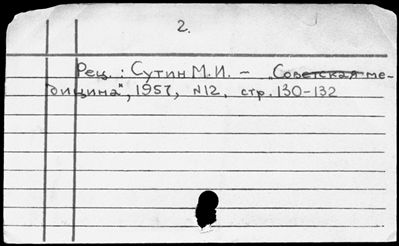 2.
Рец.: Сутин М.И. – „Советская ме-
дицина", 1957, №12, стр. 130-132